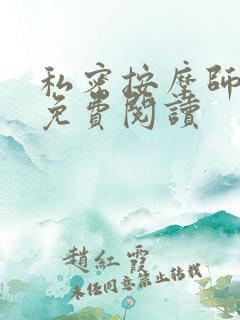 私密按摩師
免費閱讀
趙紅霞
未經同意禁止轉載